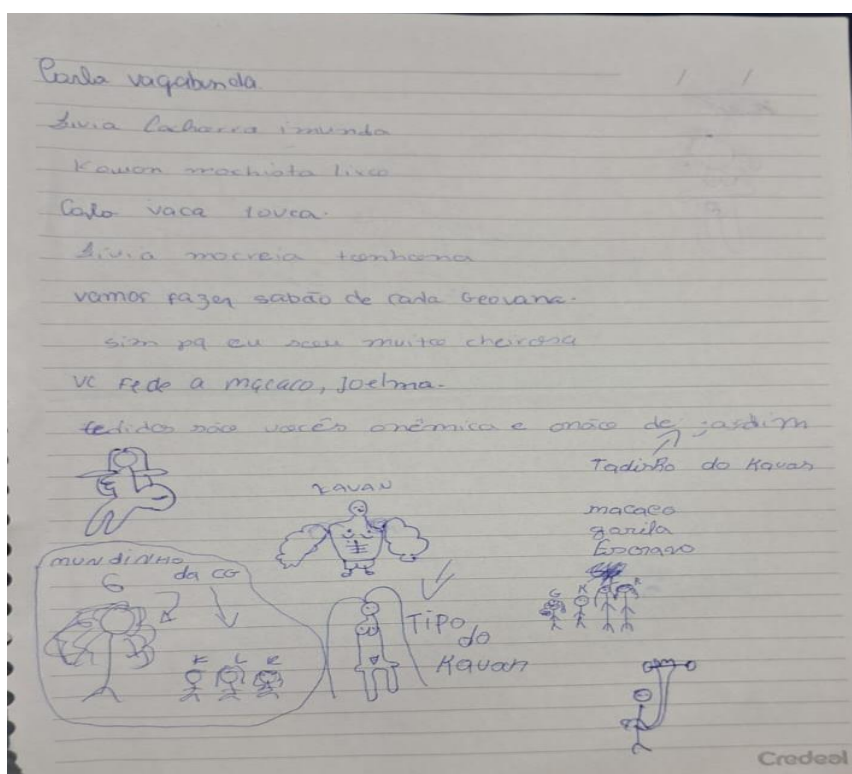 Carla vagabunda
/ /
Livia Cachorra imunda
Kauan machista lixo
Carla vaca louca.
Livia mocreia
vamos fazer sabão de Carla Geovana.
sim pq eu sou muito cheirosa
VC Fede a macaco, Joelma.
fedidos são vocês anêmica e anão de jardim
Tadinho do Kauan
KAUAN
macaco
garila
Escravo
MUNDINHO
da CG
G
K L K
G K K
TIPO
do
Kauan
Credeal